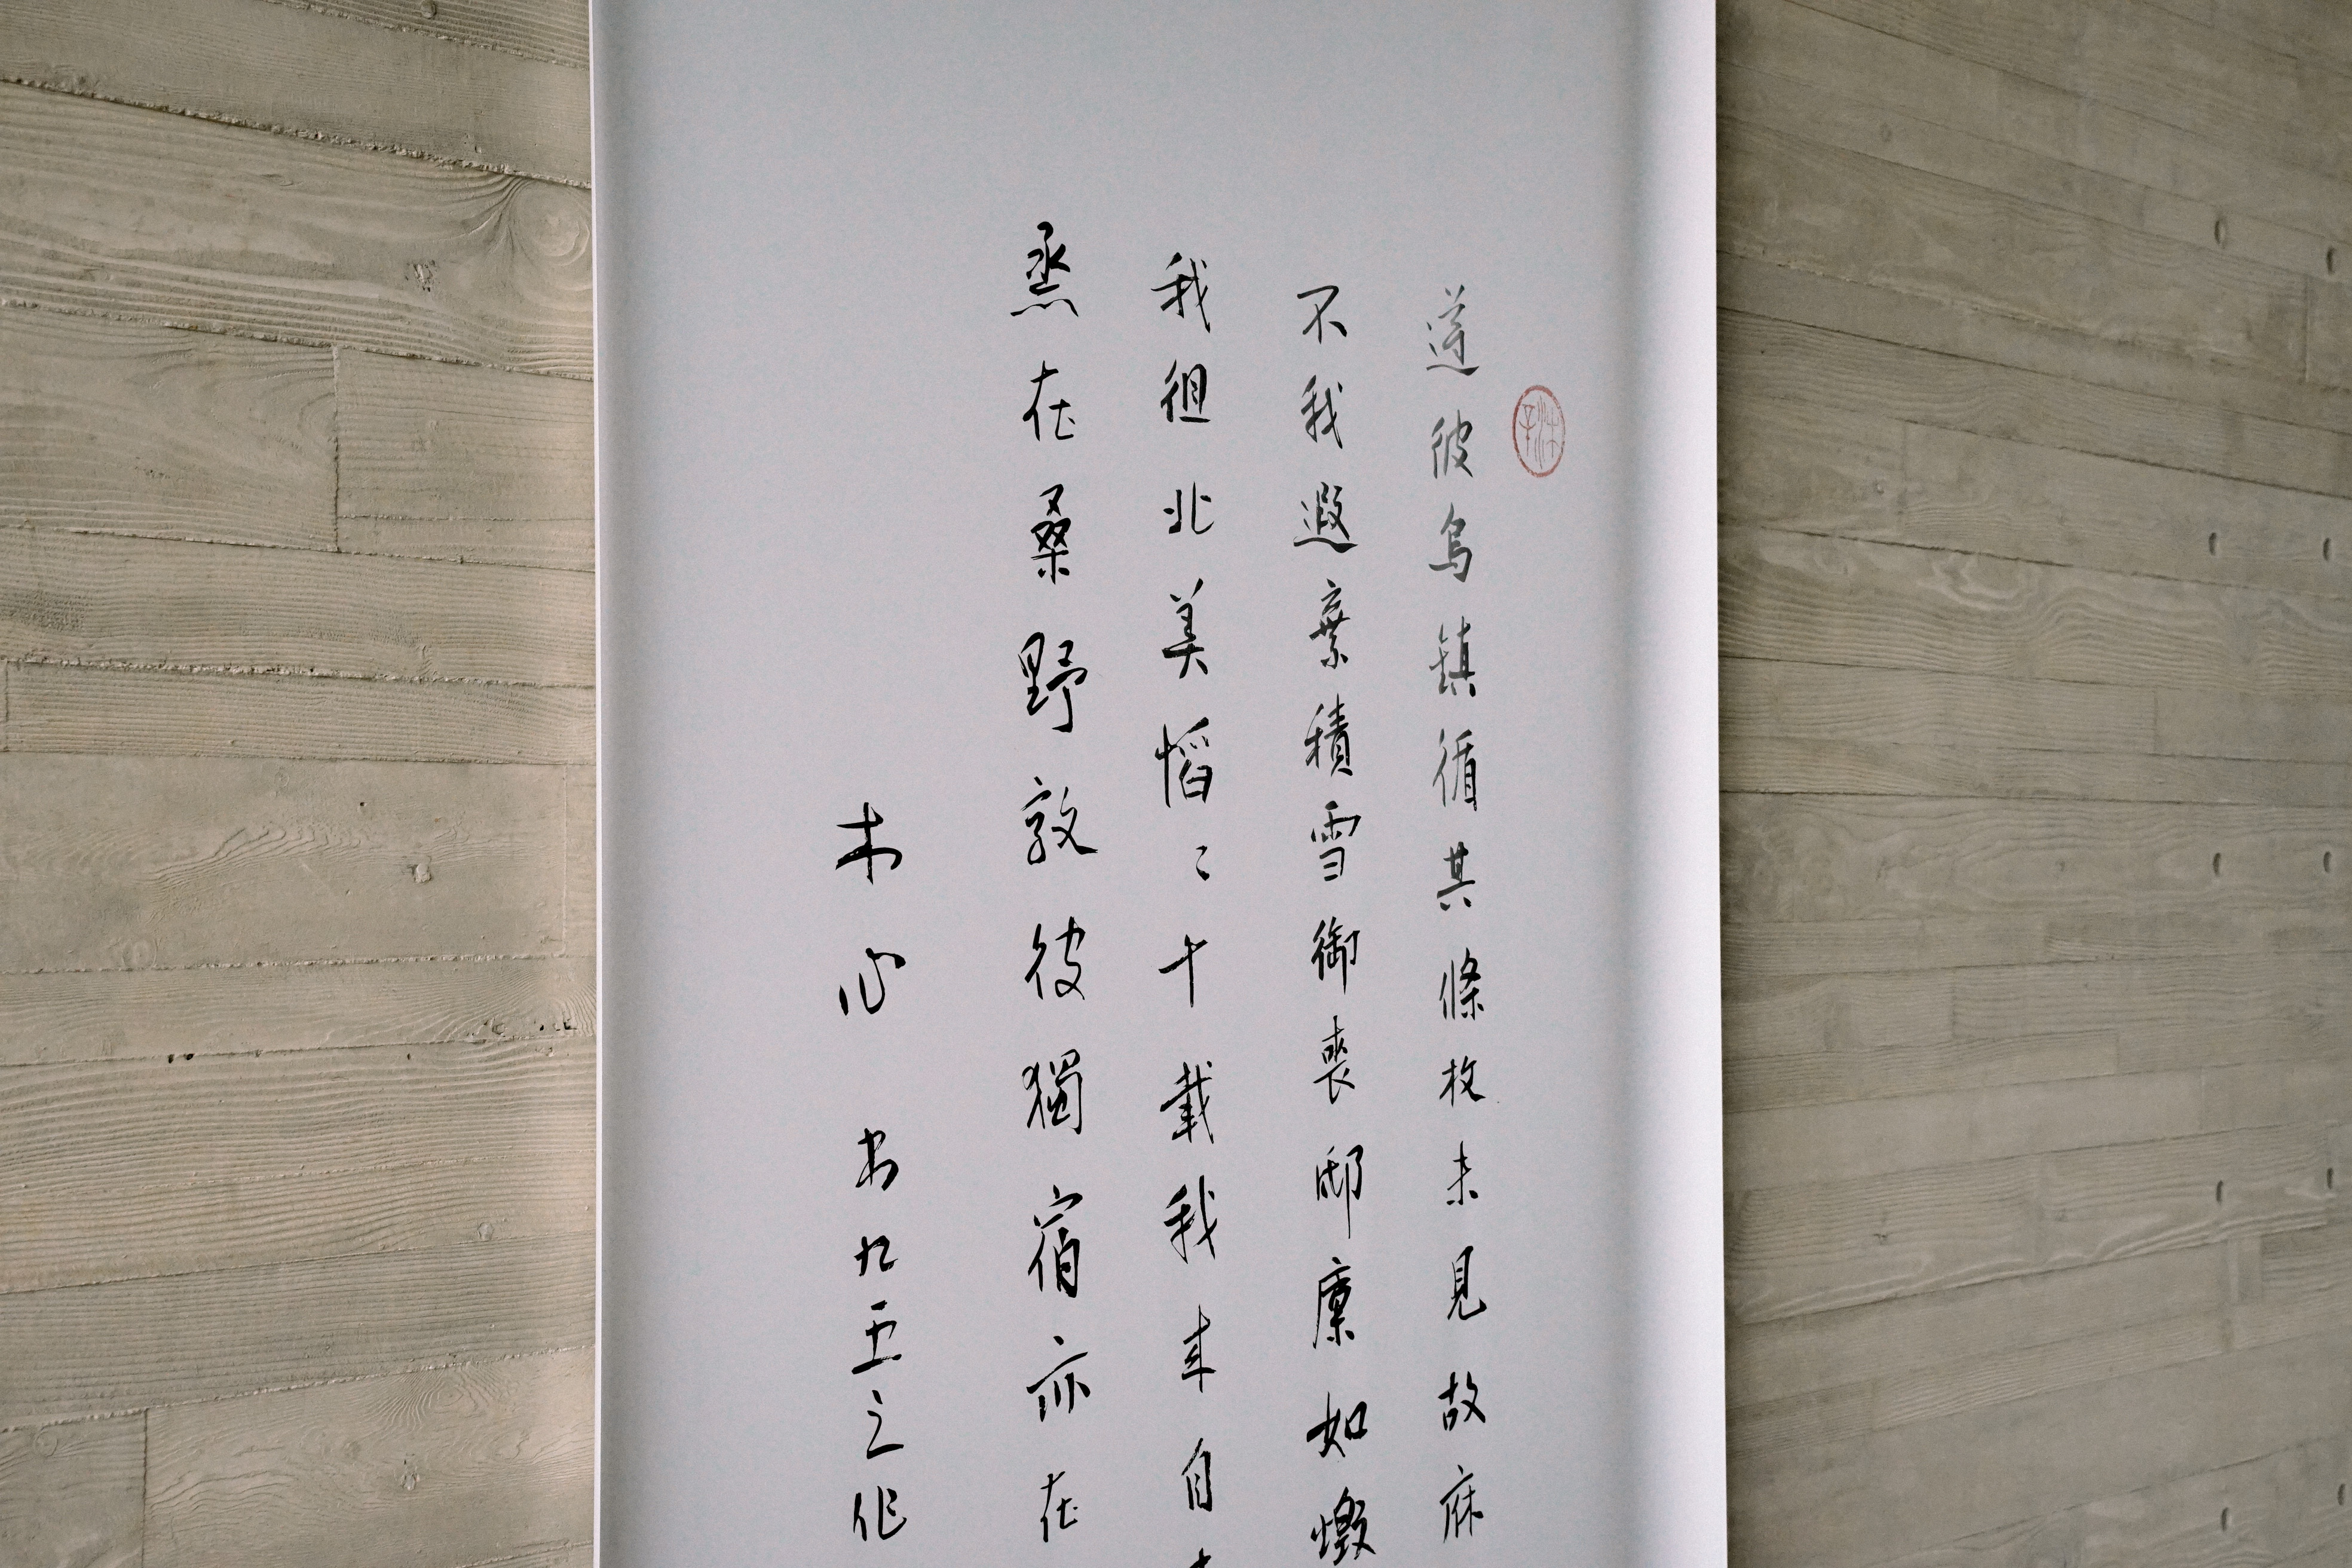 遵彼烏鎮循其條枚未見故庥
不我遐棄積雪御喪邸廩如燬
我徂北美慆〻十載我來自
烝在桑野敦彼獨宿亦在
木心 书九五之作